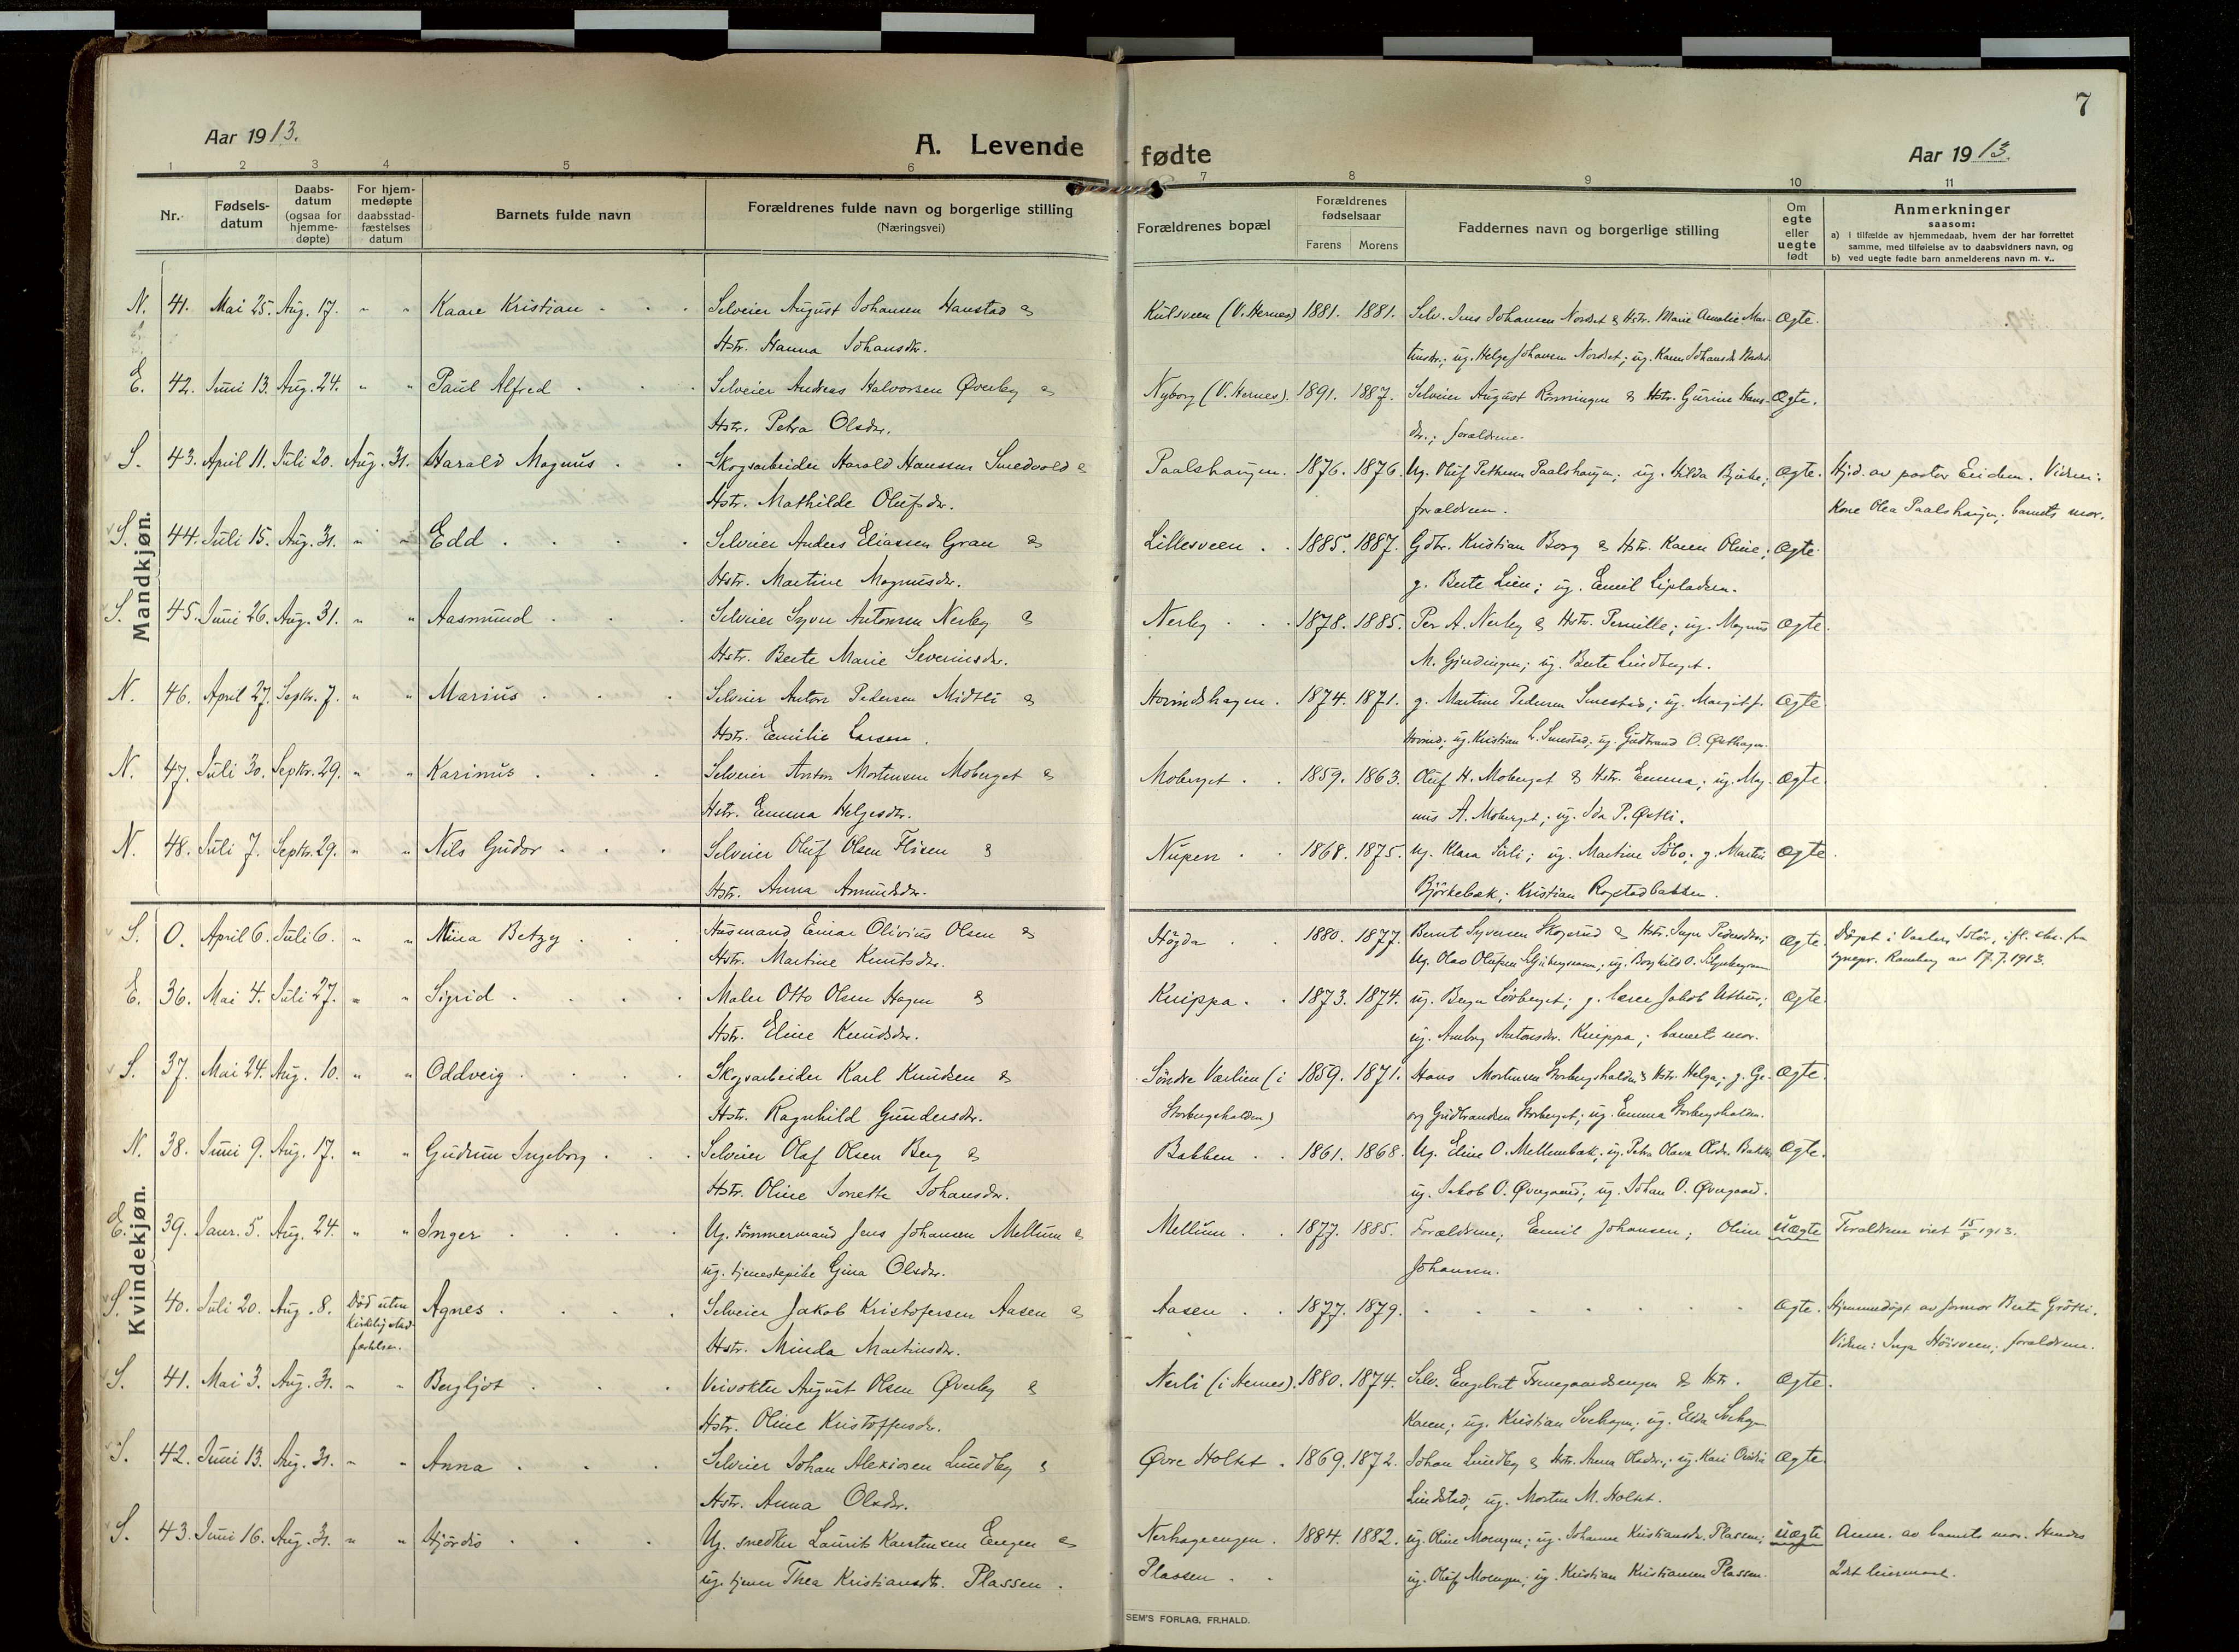 7
Aar 1913.
A. Levende fødte
Aar 1913.
1 2 3 4 5 6 7 8 9 10 11
Nr.
Fødsels-
datum
Daabs-
datum
(ogsaa for
hjemme-
døpte)
For hjem-
medøpte
daabsstad-
fæstelses
datum
Barnets fulde navn
Forældrenes fulde navn og borgerlige stilling
(Næringsvei)
Forældrenes bopæl
Forældrenes
fødselsaar
Farens Morens
Faddernes navn og borgerlige stilling
Om
egte
eller
uegte
født
Anmerkninger
saasom:
a) I tilfælde av hjemmedaab, hvem der har forrettet
samme, med tilføielse av to daabsvidners navn, og
b) ved uegte fødte barn anmelderens navn m. v..
Mandkjøn.
N. 41. Mai 25. Aug. 17. " " Kaare Kristian Selveier August Johansen Hanstad & Kulsveen (V. Hernes) 1881. 1881. Selv. Jens Johansen Nordset & Hstr. Marie Amalie Mar- Ægte.
Hstr. Hanna Johansdtr. tinsdtr.; ug. Helge Johansen Nordset; ug. Karen Johansdtr.
E. 42. Juni 13. Aug. 24. " " Paul Alfred Selveier Andreas Halvorsen Øverby & Nyborg (V. Hernes). 1891. 1887. Selveier August Rønningen & Hstr. Gurine Hans- Ægte.
Hstr. Petra Olsdtr. dtr.; forældrene.
S. 43. April 11. Juli 20. Aug. 31. Harald Magnus Skogsarbeider Harald Hanssen Smedvold & Paalshaugen. 1876. 1876. Ug. Oluf Pettersen Paalshaugen; ug. Hilda Bjørke; Ægte. Hj.d. av pastor Eidem. Vidner:
Hstr. Mathilde Olufsdr. forældrene. Kone Olea Paalshaugen; barnets mor.
S. 44. Juli 15. Aug. 31. " " Edd Selveier Anders Eliassen Gran & Lillesveen 1885. 1887. Gdbr. Kristian Borg & Hstr. Karen Oline; Ægte.
Hstr. Martine Magnusdr. g. Berte Lien; ug. Emil
S. 45. Juni 26. Aug. 31. " " Aasmund Selveier Syver Antonsen Nerby & Nerby 1878. 1885. Per A. Nerby & Hstr. Pernille; ug. Magnus Ægte.
Hstr. Berte Marie Severinsdr. M. Gjendingen; ug. Berte Lindberget.
N. 46. April 27. Septbr. 7. " " Marius Selveier Anton Pedersen Midtli & Hovindshagen. 1874. 1871. g. Martine Pedersen Smestad; ug. Margit Ægte
Hstr. Emilie Larsen. Hovind; ug. Kristian L. Smestad; ug. Gudbrand O. Østhagen.
N. 47. Juli 30. Septbr. 29. " " Karinus Selveier Anton Mortensen Moberget & Moberget 1859. 1863. Oluf H. Moberget & Hstr. Emma; ug. Mag- Ægte.
Hstr. Emma Helgesdtr. nus A. Moberget; ug. Ida P. Østli.
N. 48. Juli 7. Septbr. 29. " " Nils Gudor Selveier Oluf Olsen Flisen & Nupen 1868. 1875. ug. Klara Sætli; ug. Martine Söbo; g. Martin Ægte.
Hstr. Anna Amundsdr. Björkebæk; Kristian Rogstadbakken.
Kvindekjøn.
S. 0. April 6. Juli 6. " " Mina Betzy Husmand Einar Olivius Olsen & Høgda 1880. 1877. Bernt Syversen Skogsrud & Hstr. Inger Pedersdtr.; Ægte. Døpt i Vaaler, Solør, ifl. att. fra
Hstr. Martine Knutsdr. Ug. Olav Olufsen; ug. Borghild O. sognepr. Ramberg av 17.7.1913.
E. 36. Mai 4. Juli 27. " " Sigrid Maler Otto Olsen Hagen & Knippa. 1873. 1874. ug. Berger Løvberget; g. lærer Jakob Uthus; Ægte.
Hstr. Eline Knudsdr. ug. Antonsdr. Knippa; barnets mor.
S. 37. Mai 24. Aug. 10. " " Oddveig Skogsarbeider Karl Knudsen & Søndre Værlien (i 1859. 1871. Hans Mortensen Storbergshalden & Hstr. Helga; g. Ge- Ægte.
Hstr. Ragnhild Gundersdr. Storbergshalden) org Gudbrandsen Storberget; ug. Emma Storbergshalden.
N. 38. Juni 9. Aug. 17. " " Gudrun Ingeborg Selveier Olaf Olsen Berg & Bakken 1861. 1868. Ug. Eline O. Mellembæk; ug. Petra Olava Olsdr. Bakken Ægte.
Hstr. Oline Jonette Johansdr. ug. Jakob O. Øvergaard; ug. Johan O. Øvergaard.
E. 39. Janr. 5. Aug. 24. " " Inger Ug. tømmermand Jens Johansen Mellum & Mellum 1877. 1885. Forældrene; Emil Johansen; Oline uægte Forældrene viet 15/8 1913.
ug. tjenestepike Gina Olsdr. Johansen.
S. 40. Juli 20. Aug. 8. Død uten Agnes Selveier Jakob Kristofersen Aasen & Aasen 1877. 1879. Ægte. Hjemmedøpt av jormor Berte Grøtli.
kirkelig stad-
fæstelse. Hstr. Minda Martinsdr. Vidner: Inga Høisveen; forældrene.
S. 41. Mai 3. Aug. 31. " " Bergljot Veivokter August Olsen Øverby & Nerli (i Hernes). 1880. 1874. Selv. Engebret Framgaardsengen & Hstr. Ægte.
Hstr. Oline Kristoffersdr. Karen; ug. Kristian Svehagen; ug. Elida Svehagen
S. 42. Juni 13. Aug. 31. " " Anna Selveier Johan Alexiosen Lundby & Øvre Holtet 1869. 1872. Johan Lundby & Hstr. Anna Olsdr.; ug. Kari Ægte.
Hstr. Anna Olsdr. Lindstad; ug. Morten M. Holtet.
S. 43. Juni 16. Aug. 31. " " Hjørdis Ug. snedker Laurits Karstensen Engen & Nerhageengen. 1884. 1882. ug. Oline Moengen; ug. Johanne Kristiansdr. Plassen; uægte Anm. av barnets mor. Hendes
ug. tjener Thea Kristiansdtr. Plassen. Plassen ug. Oluf Moengen; ug. Kristian Kristiansen Plassen. 2det leiermaal.
SEM'S FORLAG, FR.HALD.